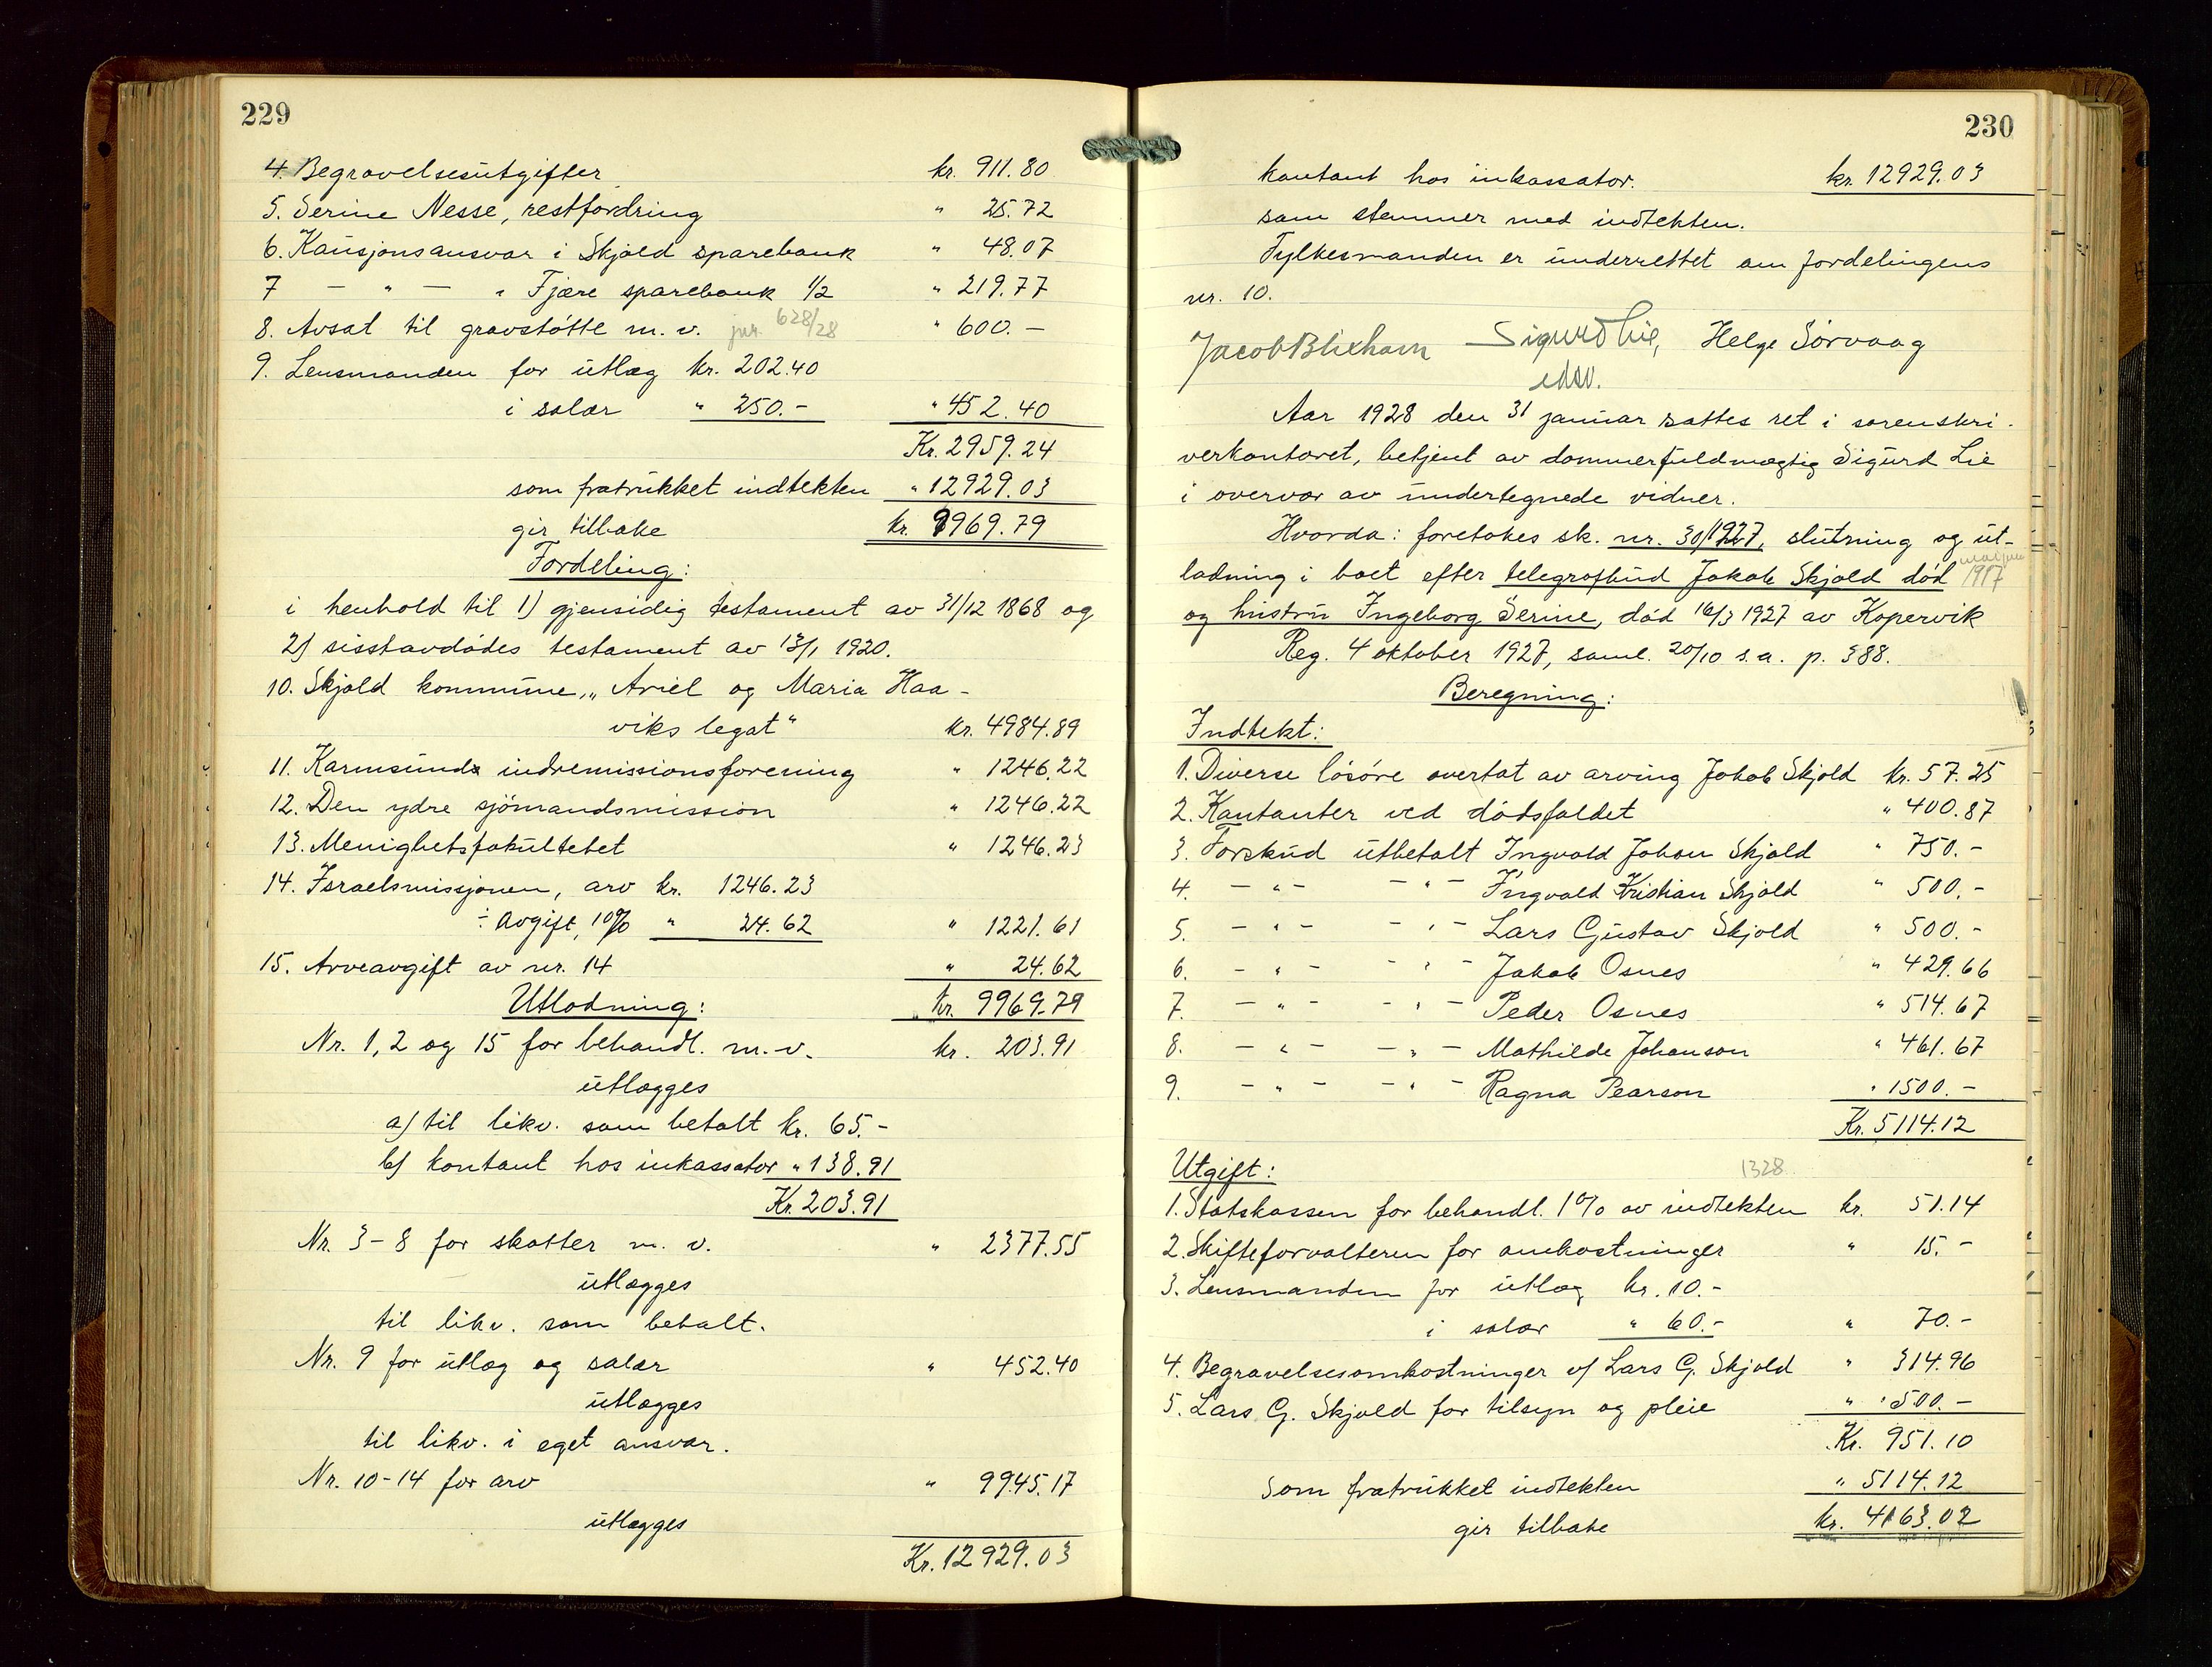 229
4. Begravelsesutgifter kr. 911.80
5. Serine Nesse, restfordring " 25.72
6. Kausjonsansvar i Skjold sparebank " 48.07
7 — " — " Fjære sparebank 1/2 " 219.77
8. Avsat til gravstøtte m. v. jnr. 628/28 " 600.—
9. Lensmanden for utlæg kr. 202.40
i salær " 250.- " 452.40
Kr. 2959.24
som fratrukket indtekten " 12929.03
gir tilbake kr. 9969.79
Fordeling:
i henhold til 1) gjensidig testament av 31/12 1868 og
2) sisstavdødes testament av 13/1 1920.
10. Skjold kommune, „Ariel og Maria Haa-
viks legat" kr. 4984.89
11. Karmsunds indremissionsforening " 1246.22
12. Den ydre sjömandsmission " 1246.22
13. Menighetsfakultetet " 1246.23
14. Israelsmissjonen, arv kr. 1246.23
÷ Avgift, 10% " 24.62 " 1221.61
15. Arveavgift av nr. 14 " 24.62
Utlodning: kr. 9969.79
Nr. 1, 2 og 15 for behandl. m.v. kr. 203.91
utlægges
a) til likv. som betalt kr. 65.-
b) kontant hos inkassator " 138.91
Kr. 203.91
Nr. 3-8 for skatter m. v. " 2377.55
utlægges
til likv. som betalt.
Nr. 9 for utlæg og salær " 452.40
utlægges
til likv. i eget ansvar.
Nr. 10-14 for arv " 9945.17
utlægges
Kr. 12929.03
230
kontant hos inkassator. kr. 12929.03
som stemmer med indtekten.
Fylkesmanden er underrettet om fordelingens
nr. 10.
Jacob Blixhavn Sigurd Lie, Helge Sörvaag
edsv.
Aar 1928 den 31 januar sattes ret i sorenskri-
verkontoret, betjent av dommerfuldmægtig Sigurd Lie
i overvær av undertegnede vidner.
Hvorda: foretokes sk. nr. 30/1927, slutning og ut-
lodning i boet efter telegrafbud Jakob Skjold død 1917
og hustru Ingeborg Serine, død 16/3 1927 av Kopervik
Reg. 4 oktober 1927, saml. 20/10 s.a. p. 388.
Beregning:
Indtekt:
1. Diverse lösöre overtat av arving Jakob Skjold kr. 57.25
2. Kontanter ved dödsfaldet " 400.87
3. Forskud utbetalt Ingvald Johan Skjold " 750.-
4. — " — — " — Ingvald Kristian Skjold " 500.-
5. — " — — " — Lars Gustav Skjold " 500.-
6. — " — — " — Jakob Osnes " 429.66
7. — " — — " — Peder Osnes " 514.67
8. — " — — " — Mathilde Johanson " 461.67
9. — " — — " — Ragna Pearson " 1500.-
Kr. 5114.12
Utgift: 1328
1. Statskassen for behandl. 1% av indtekten kr. 51.14
2. Skifteforvalteren for omkostninger " 15.-
3. Lensmanden for utlæg kr. 10.-
i salær " 60.- " 70.-
4. Begravelsesomkostninger v/ Lars G. Skjold " 314.96
5. Lars G. Skjold for tilsyn og pleie " 500.-
Kr. 951.10
Som fratrukket indtekten " 5114.12
gir tilbake kr. 4163.02